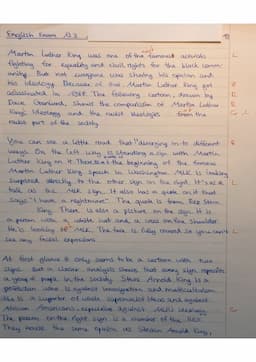 English Exam Q3
Martin Luther King was one of the famous activists
fighting for equality and civil rights for the black comm-
unity. But not everyone was sharing his opinion and
his ideology. Because of that Martin Luther King got
assassinated in 1968. The following cartoon, drawn by
Dave Granlund, shows the comparison of Martin Luther
King's ideology and the racist ideologies from the
racist part of the society.
You can see a little road that diverging into different
ways. On the left way is standing a sign with Martin
Luther King on it. There is the beginning of the famous
Martin Luther King speech in Washington. MLK is looking
surprised directly to the other sign on the right. It's as
talk as the MLK sign. It also has a quote on it that
says "I have a nightmare". The quote is from Rep. Steve
King. There is also a picture on the sign. It is
a person with a white suit and a on the shoulder.
He's looking to MLK. The face is fully covered so you can't
see any facial expressions.
At first glance it only seems to be a cartoon with two
signs. But in closer analysis shows that every sign represents
a group of people in the society. Steve King is a
politician who is against immigration and multiculturalism.
He is a supporter of white supremacist ideas and against
African Americans, especially against MLK's ideology.
The person on the right sign is a member of the KKK.
They have the same opinion as Steve King,
L
R
G